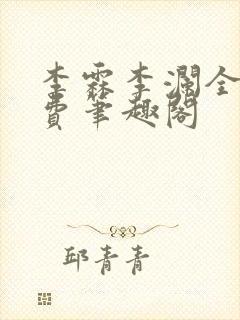 李霖李澜全
费笔趣阁
邱青青